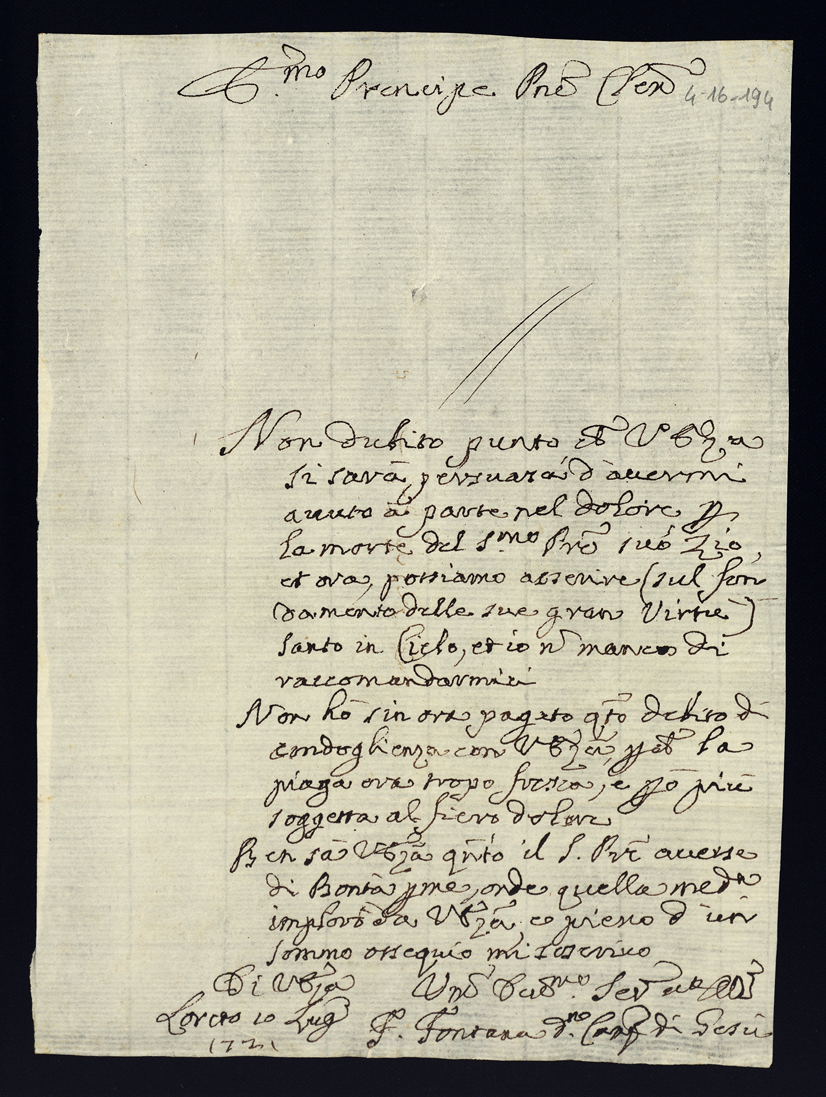 E.mo Prencipe Pnē Clen̄ 4-16-194
Non dubito punto ch̄ V. Ecz.a
si sarà persuasa d'avermi
auuto à parte nel dolore p
la morte del S.mo Prē suo Zio,
et ora, possiamo asserire (sul fon
damento delle sue gran Virtù)
santo in Cielo, et io n̄ manco di
raccomandarmici
Non hò sin ora pagato qt̄o debito di
condoglienza con V. Ecz.a, pch̄ la
piaga era tropo fresca, e pò più
soggetta al fiero dolore
Ben sà V. Ecz.a qn̄to il S. Prē avesse
di Bontà p me, onde quella med.a
imploro da V. Ecz.a, e pieno d'un
sommo ossequio mi soscrivo
Di V. Ecz.a Serv.
Loreto 10 Lug
F. Fontana d.no di Gesù
1721